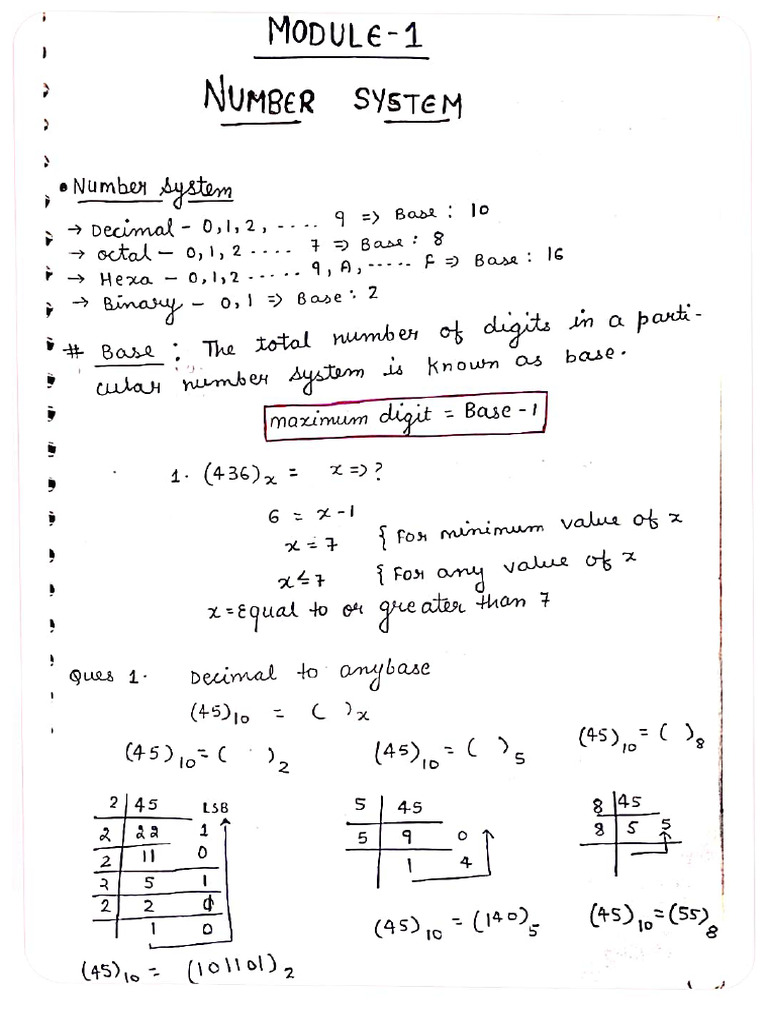 MODULE-1
NUMBER SYSTEM
• Number System
→ Decimal - 0,1,2, .... 9 => Base : 10
→ octal - 0,1,2 .... 7 => Base : 8
→ Hexa - 0,1,2 ..... 9, A, ..... F => Base : 16
→ Binary - 0,1 => Base : 2
# Base : The total number of digits in a parti-
cular number system is known as base.
maximum digit = Base - 1
1. (436)x = x => ?
6 = x - 1
x = 7 { For minimum value of x
x ≤ 7 { For any value of x
x = Equal to or greater than 7
Ques 1. Decimal to anybase
(45)10 = ( )x
(45)10 = ( )2 (45)10 = ( )5 (45)10 = ( )8
2 45 LSB
2 22 1
2 11 0
2 5 1
2 2 0
1 0
(45)10 = (101101)2
5 45
5 9 0
1 4
(45)10 = (140)5
8 45
8 5 5
(45)10 = (55)8